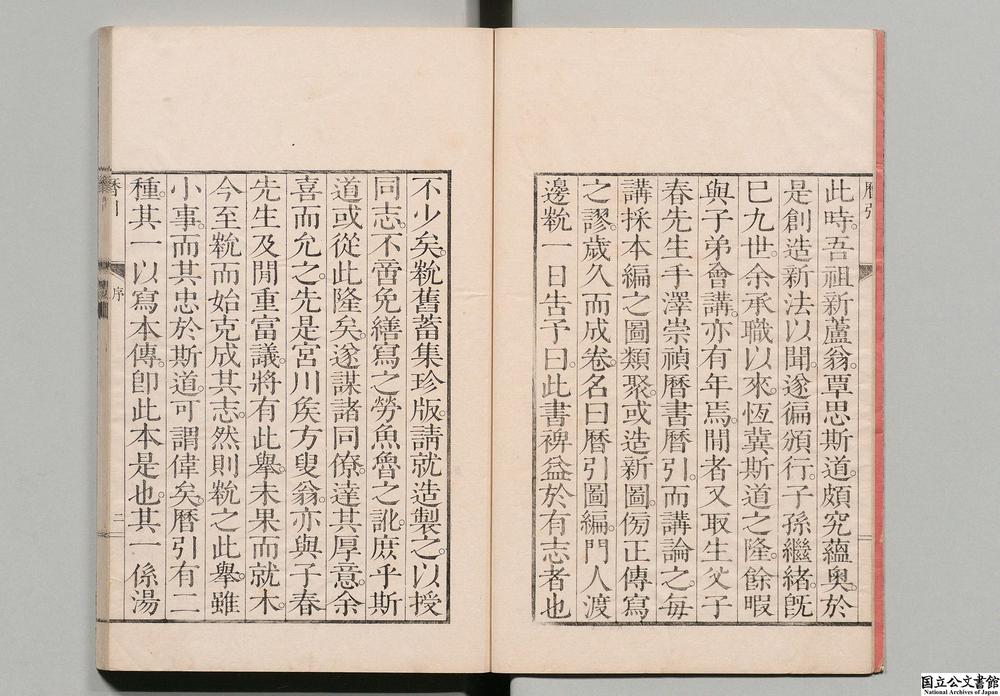 曆引
此時。吾祖新蘆翁。覃思斯道。頗究蘊奧。於
是創造新法以聞。遂徧頒行。子孫繼緒。既
巳九世。余承職以來。恆冀斯道之隆。餘暇
與子弟會講。亦有年焉。閒者又取生父子
春先生手澤崇禎曆書曆引。而講論之。每
講採本編之圖類聚。或造新圖。傍正傳寫
之謬。歲久而成卷。名曰曆引圖編。門人渡
邊㪇一日告予曰。此書裨益於有志者也
不少矣。㪇舊蓄集珍版。請就造製之。以授
同志。不啻免繕寫之勞。魚魯之訛。庶乎斯
道或從此隆矣。遂謀諸同僚。達其厚意。余
喜而允之。先是宮川矦方叟翁亦與子春
先生及閒重富議。將有此舉。未果而就木。
今至㪇而始克成其志。然則㪇之此舉。雖
小事。而其忠於斯道。可謂偉矣。曆引有二
種。其一以寫本傳。卽此本是也。其一係湯
曆引
序
二
国立公文書館
National Archives of Japan